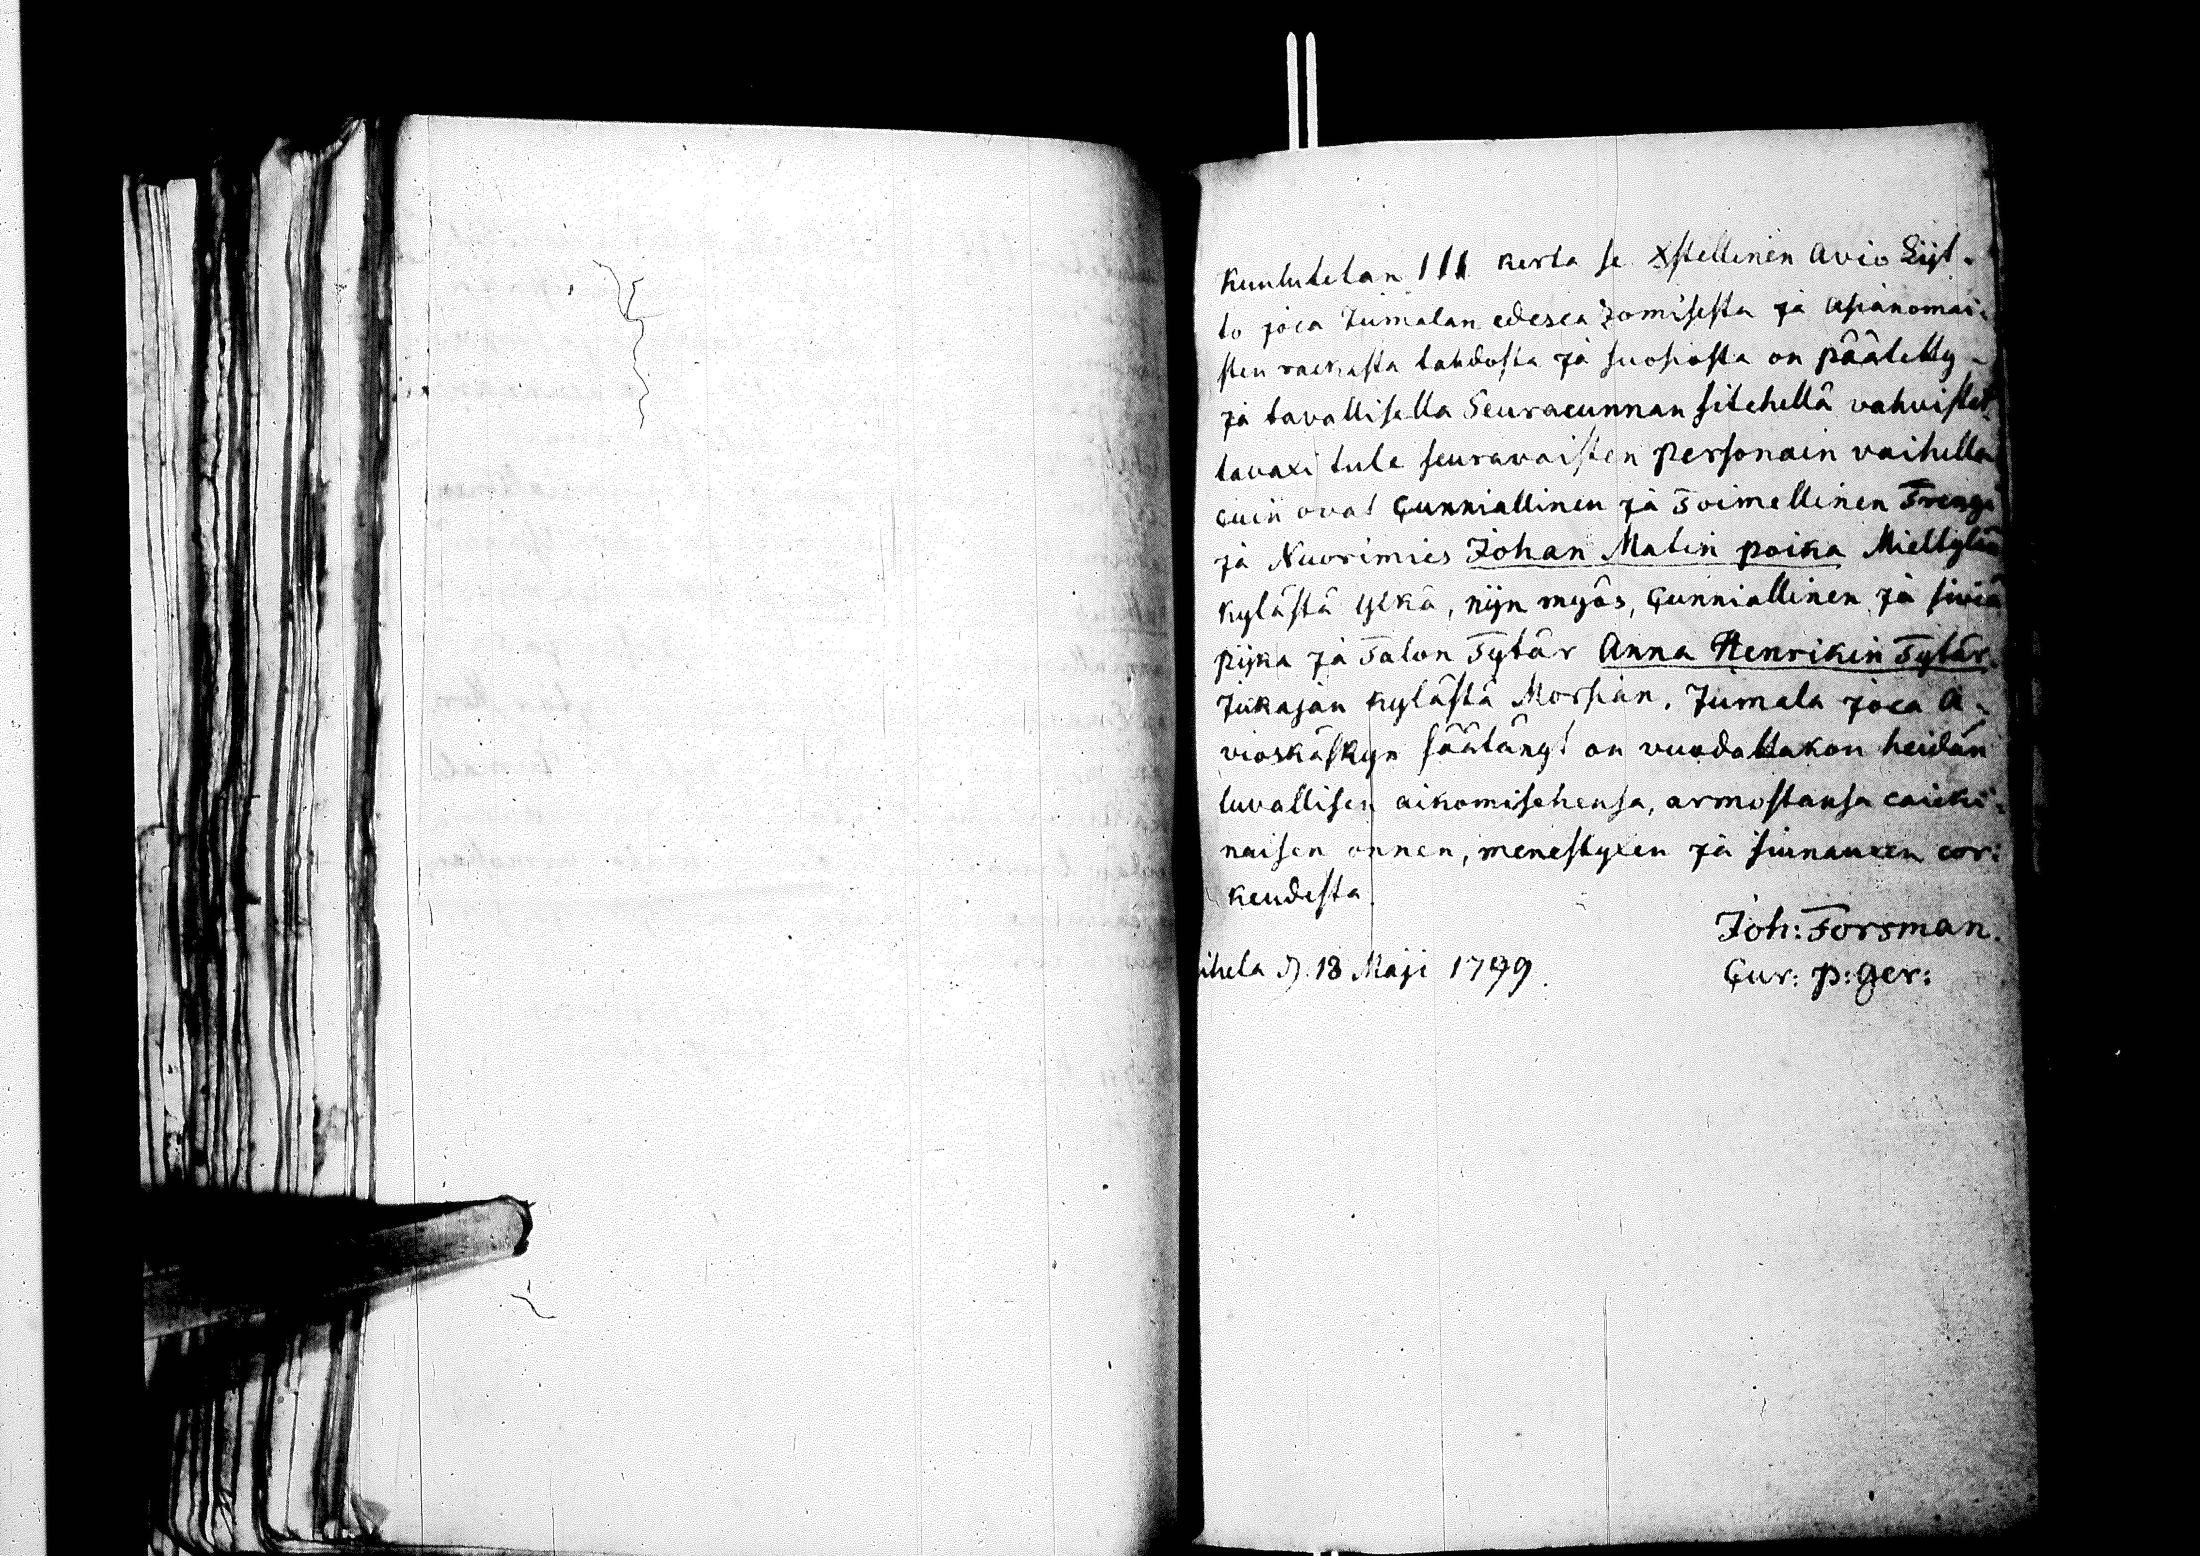 Kuulutetan III kerta se Xstellinen Avio Lijt-
to joca Jumalan edesca Zomisesta ja asianomai-
sten raekasta tahdosta ja suosiosta on päätetty
ja tavallisella Seuracunnan sitehellä vahvistet-
tavaxi tule seuravaisten personain vaihella
cuin ovat Cunniallinen ja Toimellinen Trengi
ja Nuorimies Johan Matin poika Mieltylän
kylästä yckä, nijn myös, Cunniallinen ja siviä
pijka ja Talon Tytär Anna Henrikin Tytär
Jukajan kylästä Morsian. Jumala joca A-
vioskäskyn säätänyt on vuodattakon heidän
luvallisen aikomisehensa, armostansa caicki-
naisen onnen, menestyxen ja siunauxen cor-
keudesta.
Joh: Forsman.
ihela D. 18 Maji 1799.
Cur: p: ger: